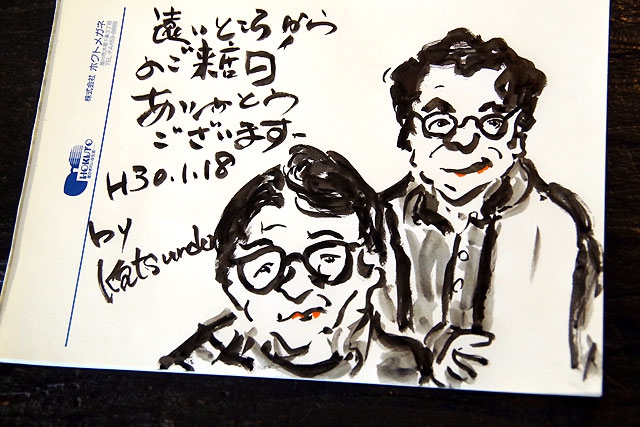 遠いところから
のご来
ありがとう
ございます
H30.1.18
by
株式会社 ホクトメガネ
HOKUTO